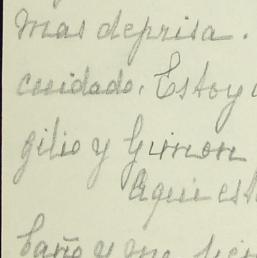 mas deprisa.
cuidado. Estoy
gilio y Gimon
Aqui est
baño y me